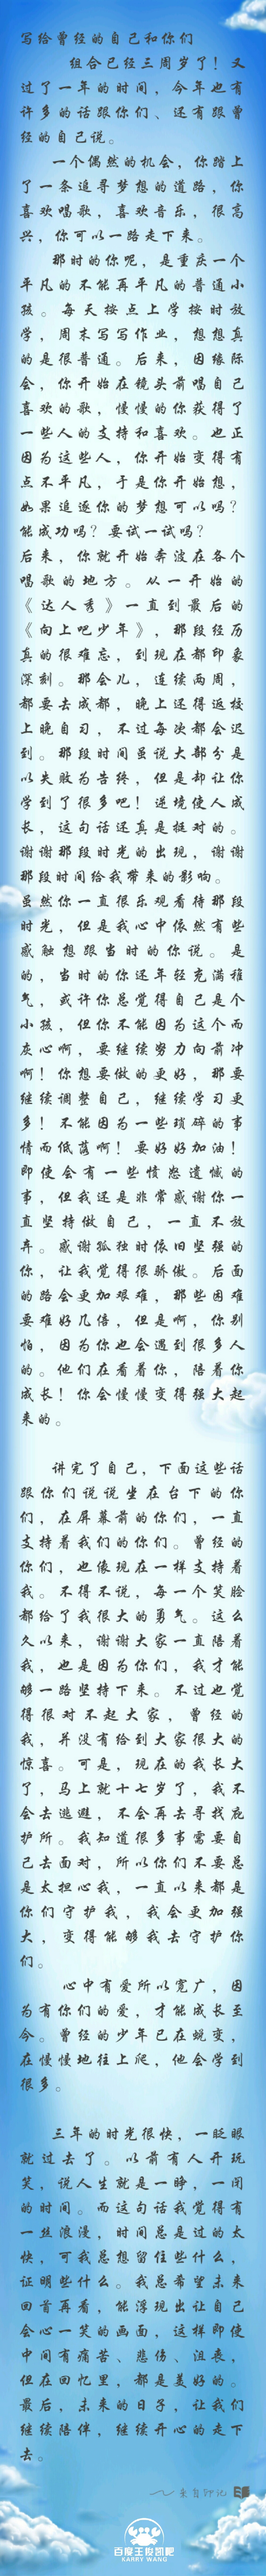 写给曾经的自己和你们
组合已经三周岁了！又
过了一年的时间，今年也有
许多的话跟你们、还有跟曾
经的自己说。
一个偶然的机会，你踏上
了一条追寻梦想的道路，你
喜欢唱歌，喜欢音乐，很高
兴，你可以一路走下来。
那时的你呢，是重庆一个
平凡的不能再平凡的普通小
孩。每天按点上学按时放
学，周末写写作业，想想真
的是很普通。后来，因缘际
会，你开始在镜头前唱自己
喜欢的歌，慢慢的你获得了
一些人的支持和喜欢。也正
因为这些人，你开始变得有
点不平凡，于是你开始想，
如果追逐你的梦想可以吗？
能成功吗？要试一试吗？
后来，你就开始奔波在各个
唱歌的地方。从一开始的
《达人秀》一直到最后的
《向上吧少年》，那段经历
真的很难忘，到现在都印象
深刻。那会儿，连续两周，
都要去成都，晚上还得返校
上晚自习，不过每次都会迟
到。那段时间虽说大部分是
以失败为告终，但是却让你
学到了很多吧！逆境使人成
长，这句话还真是挺对的。
谢谢那段时光的出现，谢谢
那段时间给我带来的影响。
虽然你一直很乐观看待那段
时光，但是我心中依然有些
感触想跟当时的你说。是
的，当时的你还年轻充满稚
气，或许你总觉得自己是个
小孩，但你不能因为这个而
灰心啊，要继续努力向前冲
啊！你想要做的更好，那要
继续调整自己，继续学习更
多！不能因为一些琐碎的事
情而低落啊！要好好加油！
即使会有一些愤怒遗憾的
事，但我还是非常感谢你一
直坚持做自己，一直不放
弃。感谢孤独时依旧坚强的
你，让我觉得很骄傲。后面
的路会更加艰难，那些困难
要难好几倍，但是啊，你别
怕，因为你也会遇到很多人
的。他们在看着你，陪着你
成长！你会慢慢变得强大起
来的。
讲完了自己，下面这些话
跟你们说说坐在台下的你
们，在屏幕前的你们，一直
支持着我们的你们。曾经的
你们，也像现在一样支持着
我。不得不说，每一个笑脸
都给了我很大的勇气。这么
久以来，谢谢大家一直陪着
我，也是因为你们，我才能
够一路坚持下来。不过也觉
得很对不起大家，曾经的
我，并没有给到大家很大的
惊喜。可是，现在的我长大
了，马上就十七岁了，我不
会去逃避，不会再去寻找庇
护所。我知道很多事需要自
己去面对，所以你们不要总
是太担心我，一直以来都是
你们守护我，我会更加强
大，变得能够我去守护你
们。
心中有爱所以宽广，因
为有你们的爱，才能成长至
今。曾经的少年已在蜕变，
在慢慢地往上爬，他会学到
很多。
三年的时光很快，一眨眼
就过去了。以前有人开玩
笑，说人生就是一睁，一闭
的时间。而这句话我觉得有
一丝浪漫，时间总是过的太
快，可我总想留住些什么，
证明些什么。我总希望未来
回首再看，能浮现出让自己
会心一笑的画面，这样即使
中间有痛苦、悲伤、沮丧，
但在回忆里，都是美好的。
最后，未来的日子，让我们
继续陪伴，继续开心的走下
去。
来自印记
百度王俊凯吧
KARRY WANG